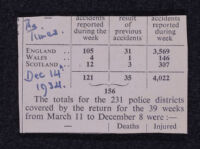 The Times.
accidents reported during the week
result of previous accidents
accidents reported during the week
ENGLAND .. 105 31 3,569
WALES .. 4 1 146
SCOTLAND .. 12 3 307
Dec 14th 1934.
121 35 4,022
156
The totals for the 231 police districts
covered by the return for the 39 weeks
from March 11 to December 8 were :—
Deaths Injured